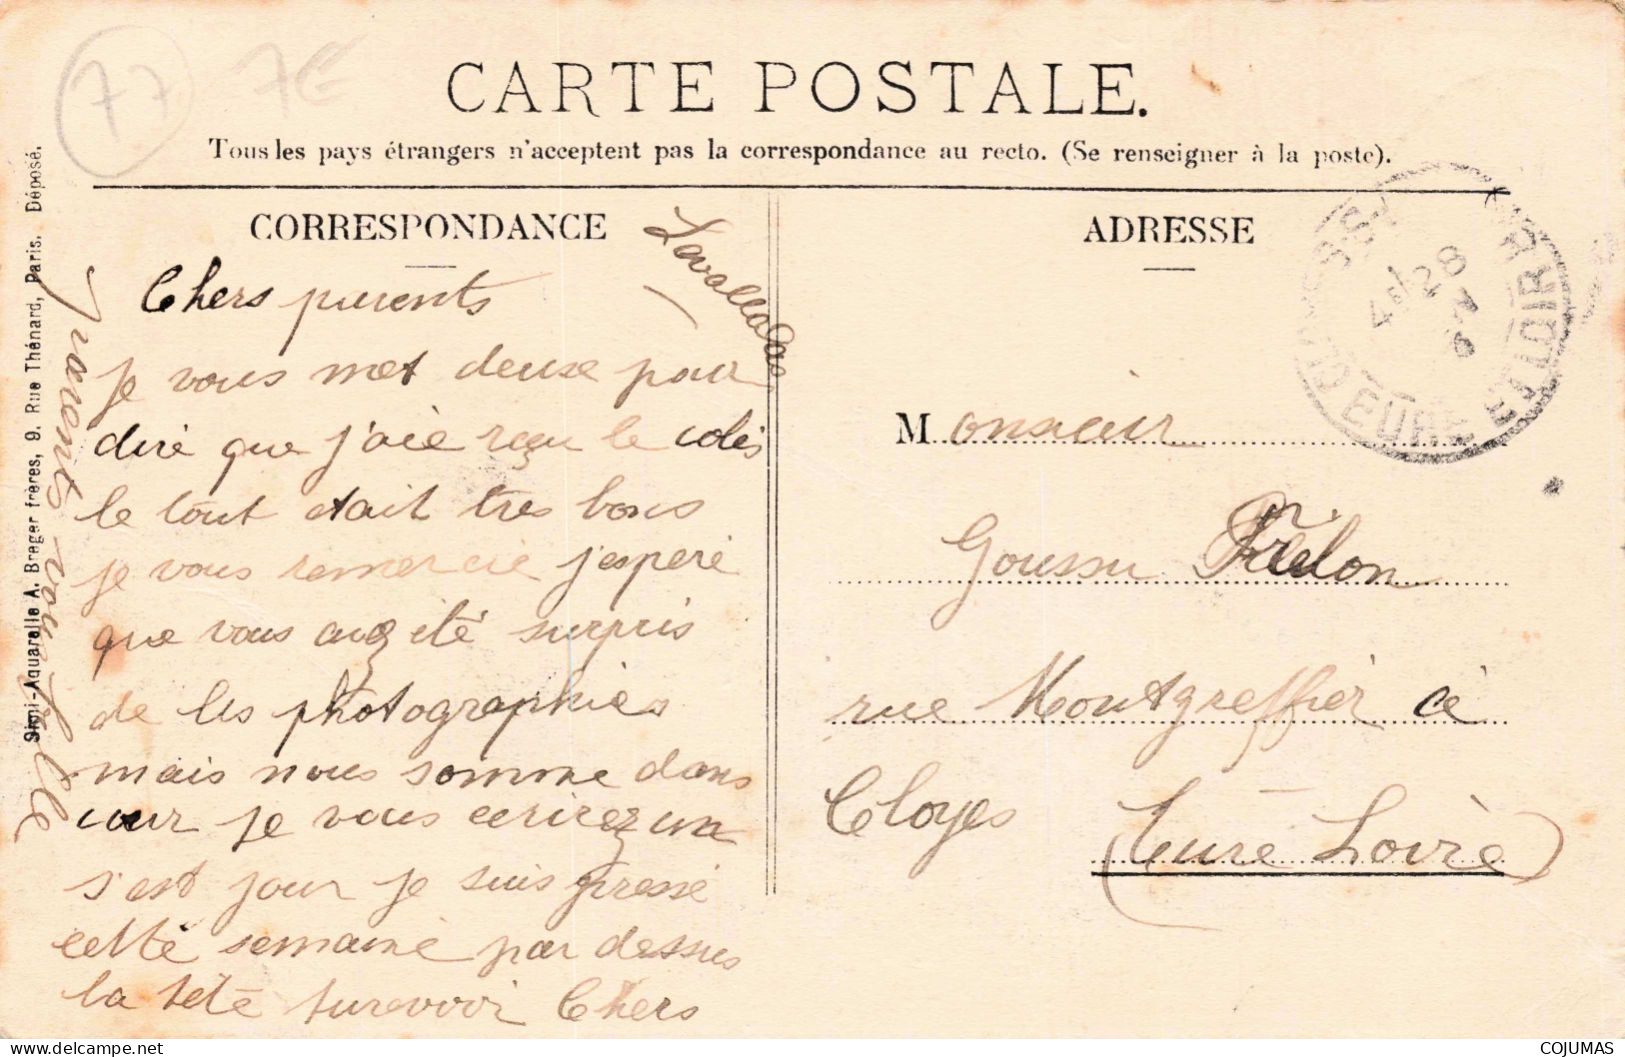 77 7€
CARTE POSTALE.
Tous les pays étrangers n'acceptent pas la correspondance au recto. (Se renseigner à la poste).
CORRESPONDANCE
Chers parents
je vous met deuse pour
dire que j'aie reçu le colis
le tout etait tres bons
je vous remercie j'esperé
que vous avez été surpris
de les photographies
mais nous somme dans
je vous ecrirez un
s'est jour je suis pressé
cette semaine par dessus
la tété Chers
parents votre fille
ADRESSE
Monsieur
Goussu Frelon
rue Montgreffier
Cloyes
(Eure Loire)
EURE ET LOIR
28
Simi-Aquarelle A. Breger frères, 9, Rue Thénard, Paris. Déposé.
COJUMAS